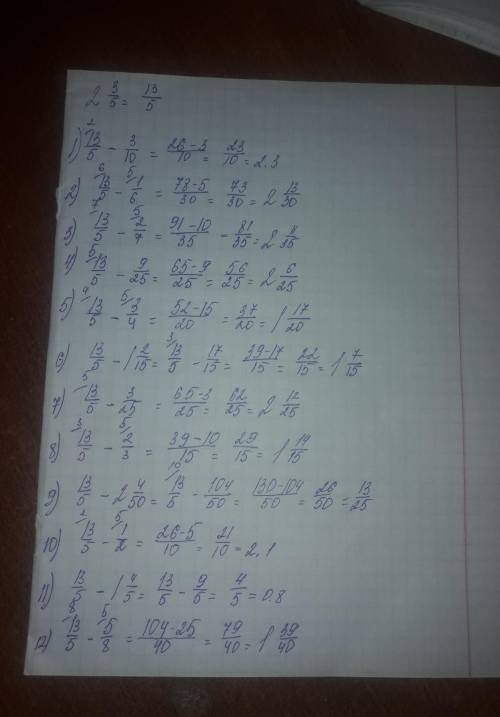 2 3/5 = 13/5
1) 13/5 - 3/10 = 26-3/10 = 23/10 = 2.3
2) 13/5 - 1/6 = 78-5/30 = 73/30 = 2 13/30
3) 13/5 - 2/7 = 91-10/35 - 81/35 = 2 11/35
4) 13/5 - 9/25 = 65-9/25 = 56/25 = 2 6/25
5) 13/5 - 3/4 = 52-15/20 = 37/20 = 1 17/20
6) 13/5 - 1 2/15 = 13/5 - 17/15 = 39-17/15 = 22/15 = 1 7/15
7) 13/5 - 3/25 = 65-3/25 = 62/25 = 2 12/25
8) 13/5 - 2/3 = 39-10/15 = 29/15 = 1 14/15
9) 13/5 - 2 4/50 = 13/5 - 104/50 = 130-104/50 = 26/50 = 13/25
10) 13/5 - 1/2 = 26-5/10 = 21/10 = 2,1
11) 13/5 - 1 4/5 = 13/5 - 9/5 = 4/5 = 0.8
12) 13/5 - 5/8 = 104-25/40 = 79/40 = 1 39/40